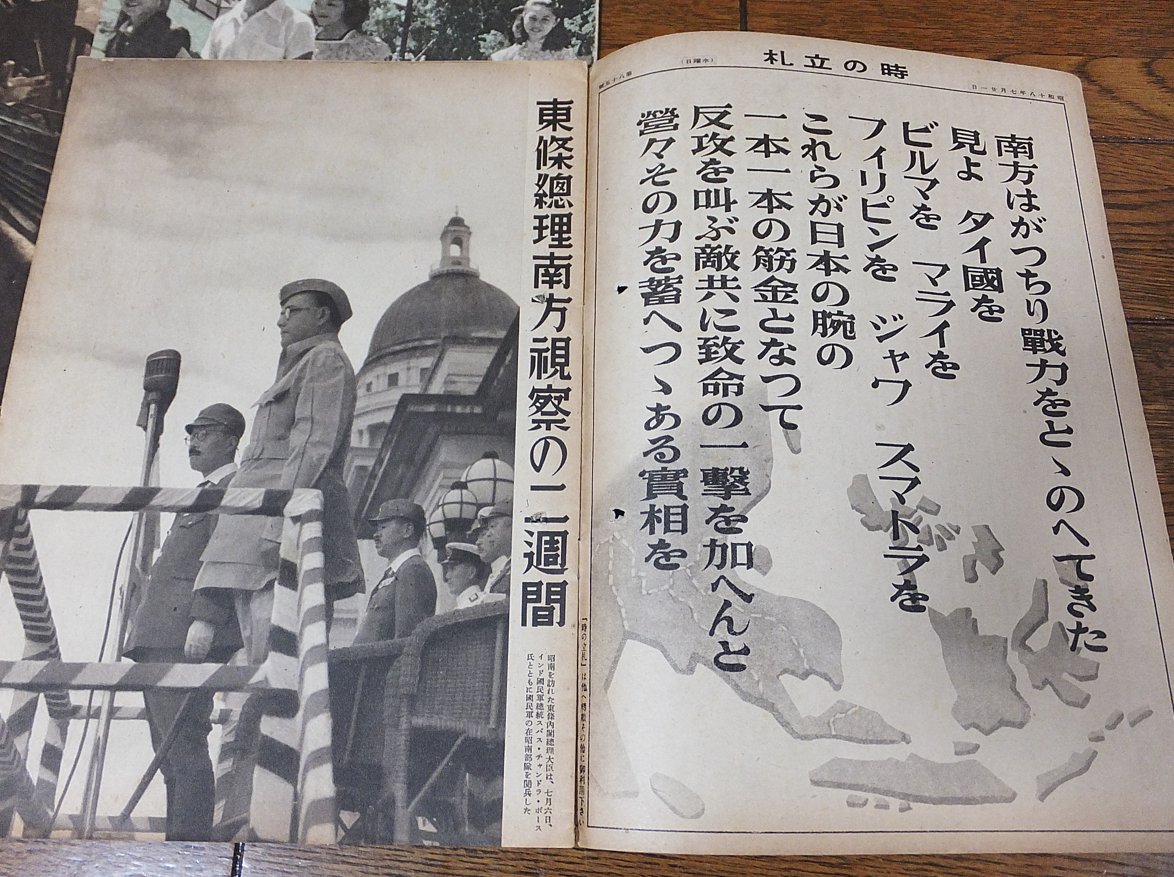 時の立札
昭和十八年七月廿一日
(水曜日)
南方はがつちり戰力をとゝのへてきた
見よ タイ國を
ビルマを マライを
フィリピンを ジャワ スマトラを
これらが日本の腕の
一本一本の筋金となつて
反攻を叫ぶ敵共に致命の一擊を加へんと
營々その力を蓄へつゝある實相を
東條總理南方視察の二週間
昭南を訪れた東條內閣總理大臣は、七月六日、
インド國民軍總統スバス・チャンドラ・ボース
氏とともに國民軍の在昭南部隊を閱兵した
「時の立札」は他へ轉載その他に御利用下さい